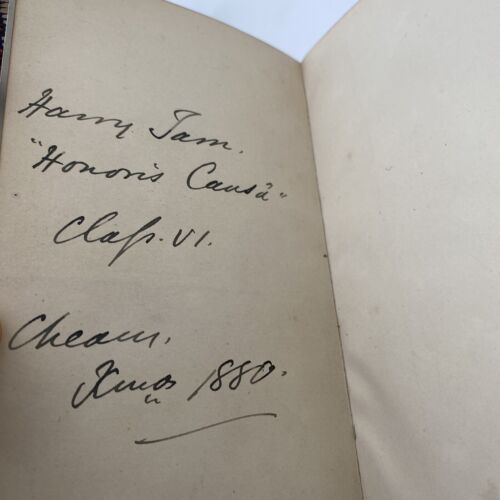 Harry Tarn.
"Honoris Causâ"
Class. VI.
Cheam.
Xmas 1880.